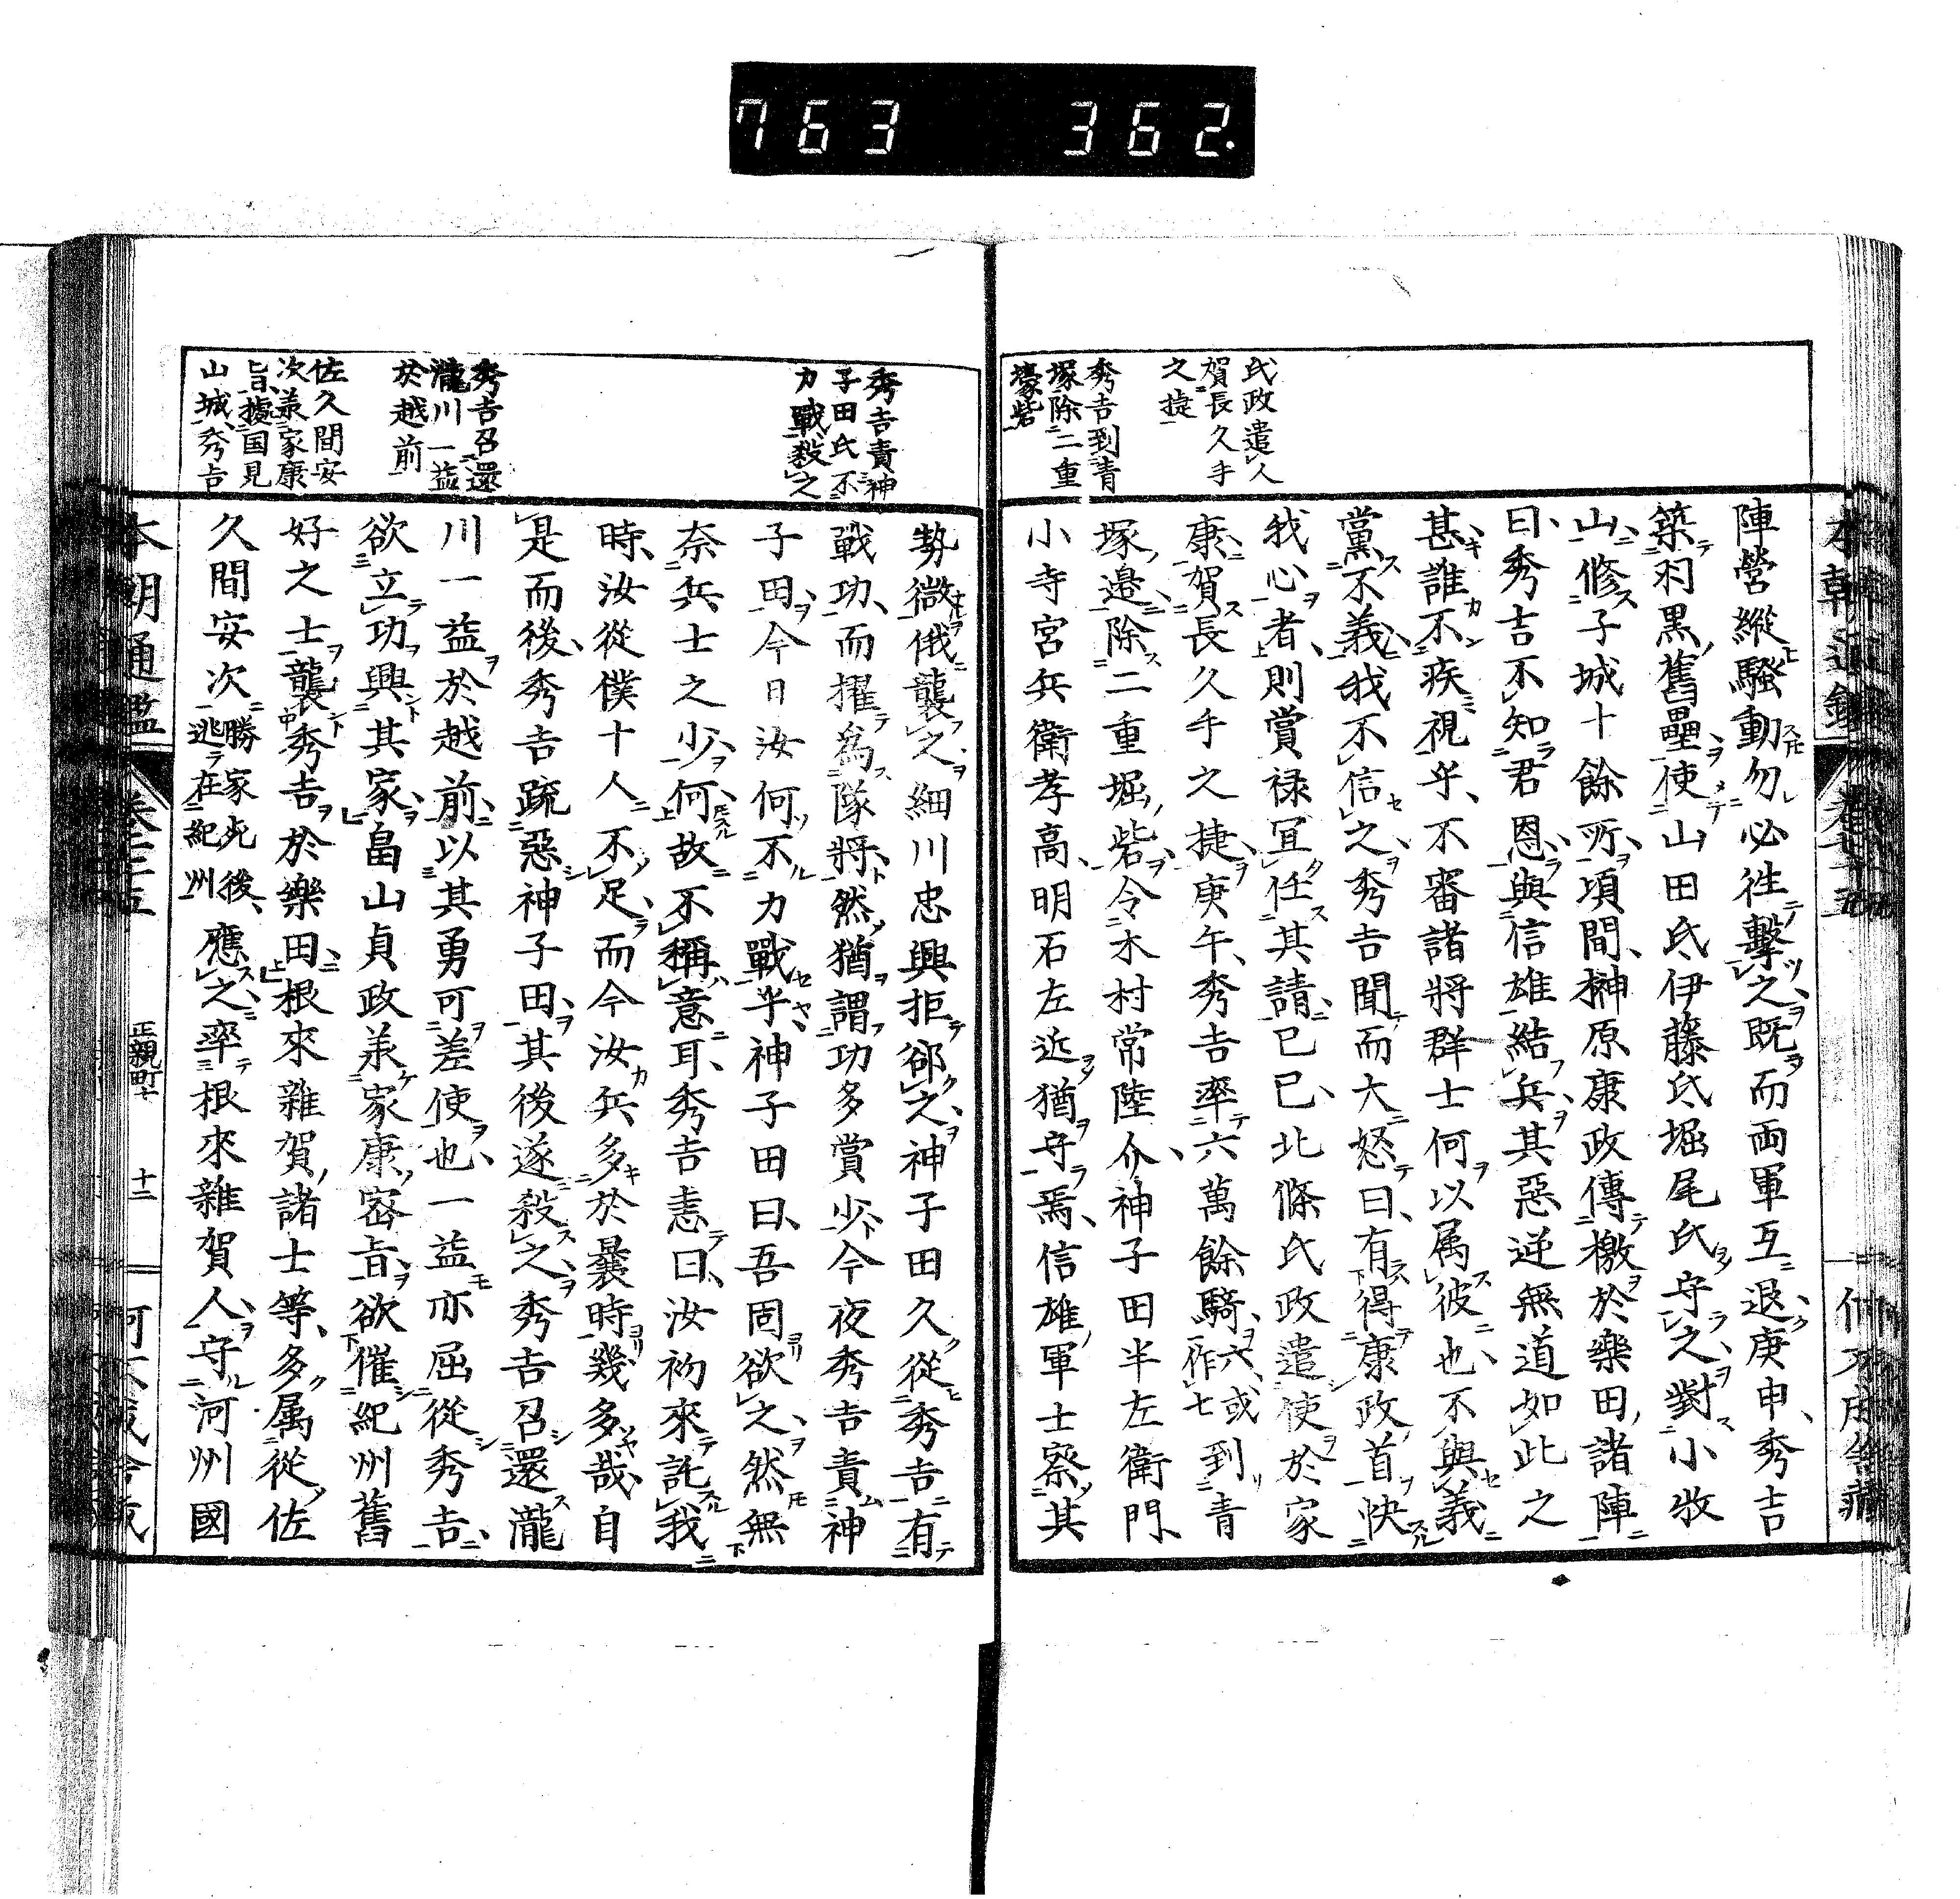 763 362.
氏政遣人
賀長久手
之捷
秀吉到青
塚除二重
壕砦
陣營縱騷動勿必徃擊之既而兩軍互退庚申秀吉
築羽黒舊壘使山田氏伊藤氏堀尾氏守之對小牧
山修子城十餘所項間榊原康政傳檄於樂田諸陣
曰秀吉不知君恩與信雄結兵其惡逆無道如此之
甚誰不疾視乎不審諸將群士何以属彼也不與義
黨不義我不信之秀吉聞而大怒曰有得康政首快
我心者則賞禄冝任其請已巳北條氏政遣使於家
康賀長久手之捷庚午秀吉率六萬餘騎六或作七到青
塚邉除二重堀砦令木村常陸介神子田半左衛門
小寺宮兵衛孝高明石左近猶守焉信雄軍士察其
秀吉責神
子田氏不
力戰殺之
秀吉召還
瀧川一益
於越前
佐久間安
次羕家康
旨據国見
山城秀吉
勢微俄襲之細川忠興拒郤之神子田久從秀吉有
戰功而擢爲隊將然猶謂功多賞少今夜秀吉責神
子田今日汝何不力戰乎神子田曰吾固欲之然無
奈兵士之少何故不稱意耳秀吉恚曰汝初來託我
時汝從僕十人不足而今汝兵多於曩時幾多哉自
是而後秀吉疏惡神子田其後遂殺之秀吉召還瀧
川一益於越前以其勇可差使也一益亦屈從秀吉
欲立功興其家畠山貞政羕家康密旨欲催紀州舊
好之士襲秀吉於樂田根來雜賀諸士等多属從佐
久間安次勝家死後逃在紀州應之率根來雜賀人守河州國
本朝通鑑 正親町十 十二